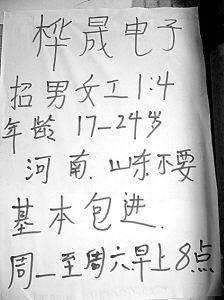 桦晟电子
招男女工1:4
年龄 17-24岁
河南.山东不要
基本包进.
周一至周六早上8点